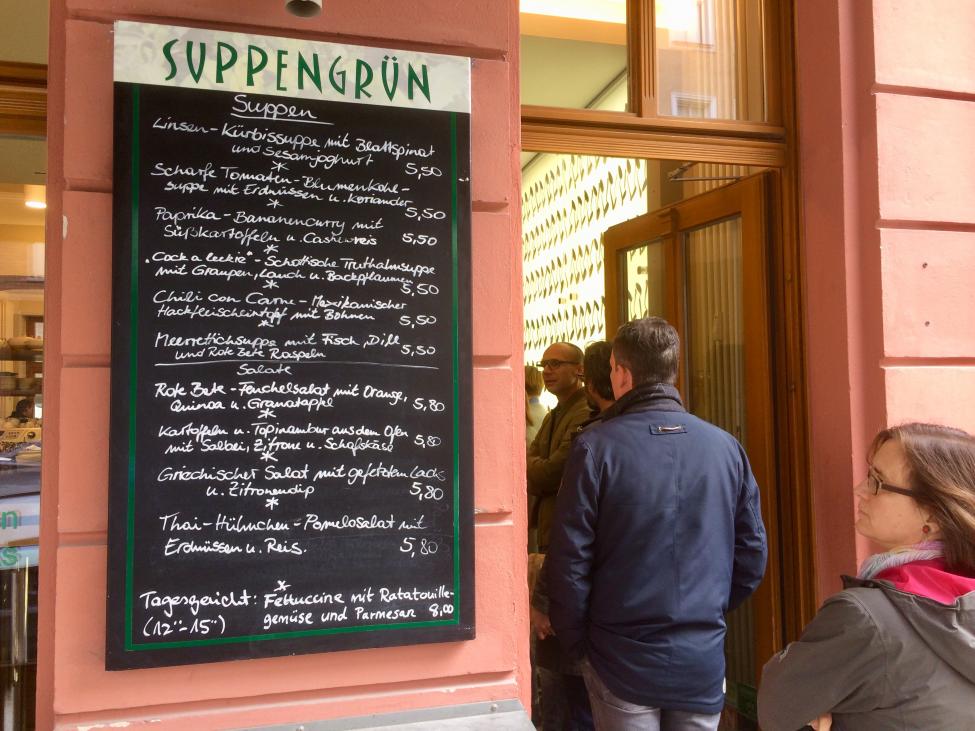 SUPPENGRÜN
Suppen
Linsen-Kürbissuppe mit Blattspinat
und Sesamjoghurt 5,50
*
Scharfe Tomaten-Blumenkohl-
suppe mit Erdnüssen u. Koriander 5,50
*
Paprika-Bananencurry mit
Süßkartoffeln u. Cashewreis 5,50
*
"Cock a leekie"-Schottische Truthahnsuppe
mit Graupen, Lauch u. Backpflaumen 5,50
*
Chili con Carne - Mexikanischer
Hackfleischeintopf mit Bohnen 5,50
*
Meerrettichsuppe mit Fisch, Dill
und Rote Bete Raspeln 5,50
Salate
Rote Bete-Fenchelsalat mit Orange,
Quinoa u. Granatapfel 5,80
*
Kartoffeln u. Topinambur aus dem Ofen
mit Salbei, Zitrone u. Schafskäse 5,80
*
Griechischer Salat mit gefetztem Lachs
u. Zitronendip 5,80
*
Thai-Hühnchen-Pomelosalat mit
Erdnüssen u. Reis. 5,80
*
Tagesgericht: Fettuccine mit Ratatouille-
(12°°-15°°) gemüse und Parmesan 8,00